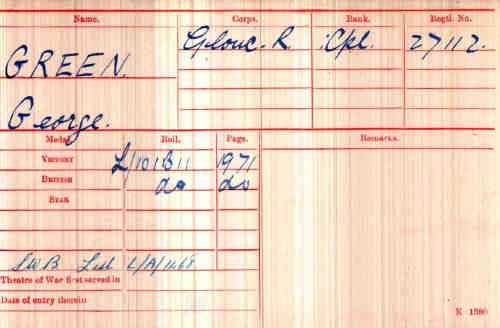 Name. Corps. Rank. Regtl. No.
GREEN. Glouc. R. Cpl. 27112.
George.
Medal. Roll. Page. Remarks.
VICTORY L/101B11 1971
BRITISH do do
STAR
SWB List
Theatre of War first served in
Date of entry therein
K 1380